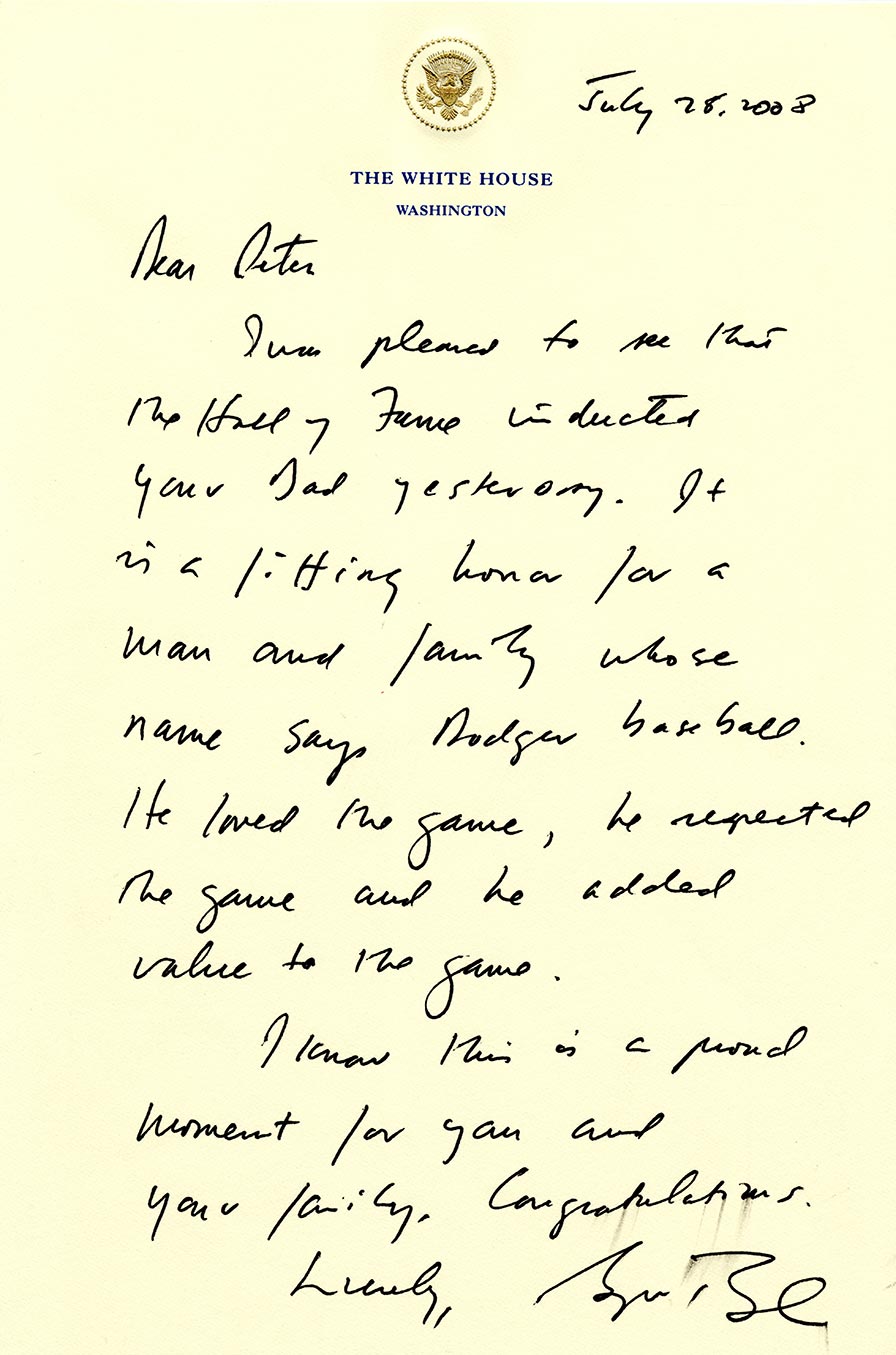 July 28, 2008
THE WHITE HOUSE
WASHINGTON
Dear Peter
I was pleased to see that
the Hall of Fame inducted
your Dad yesterday. It
is a fitting honor for a
man and family whose
name says Dodger baseball.
He loved the game, he respected
the game and he added
value to the game.
I know this is a proud
moment for you and
your family. Congratulations.
Sincerely,